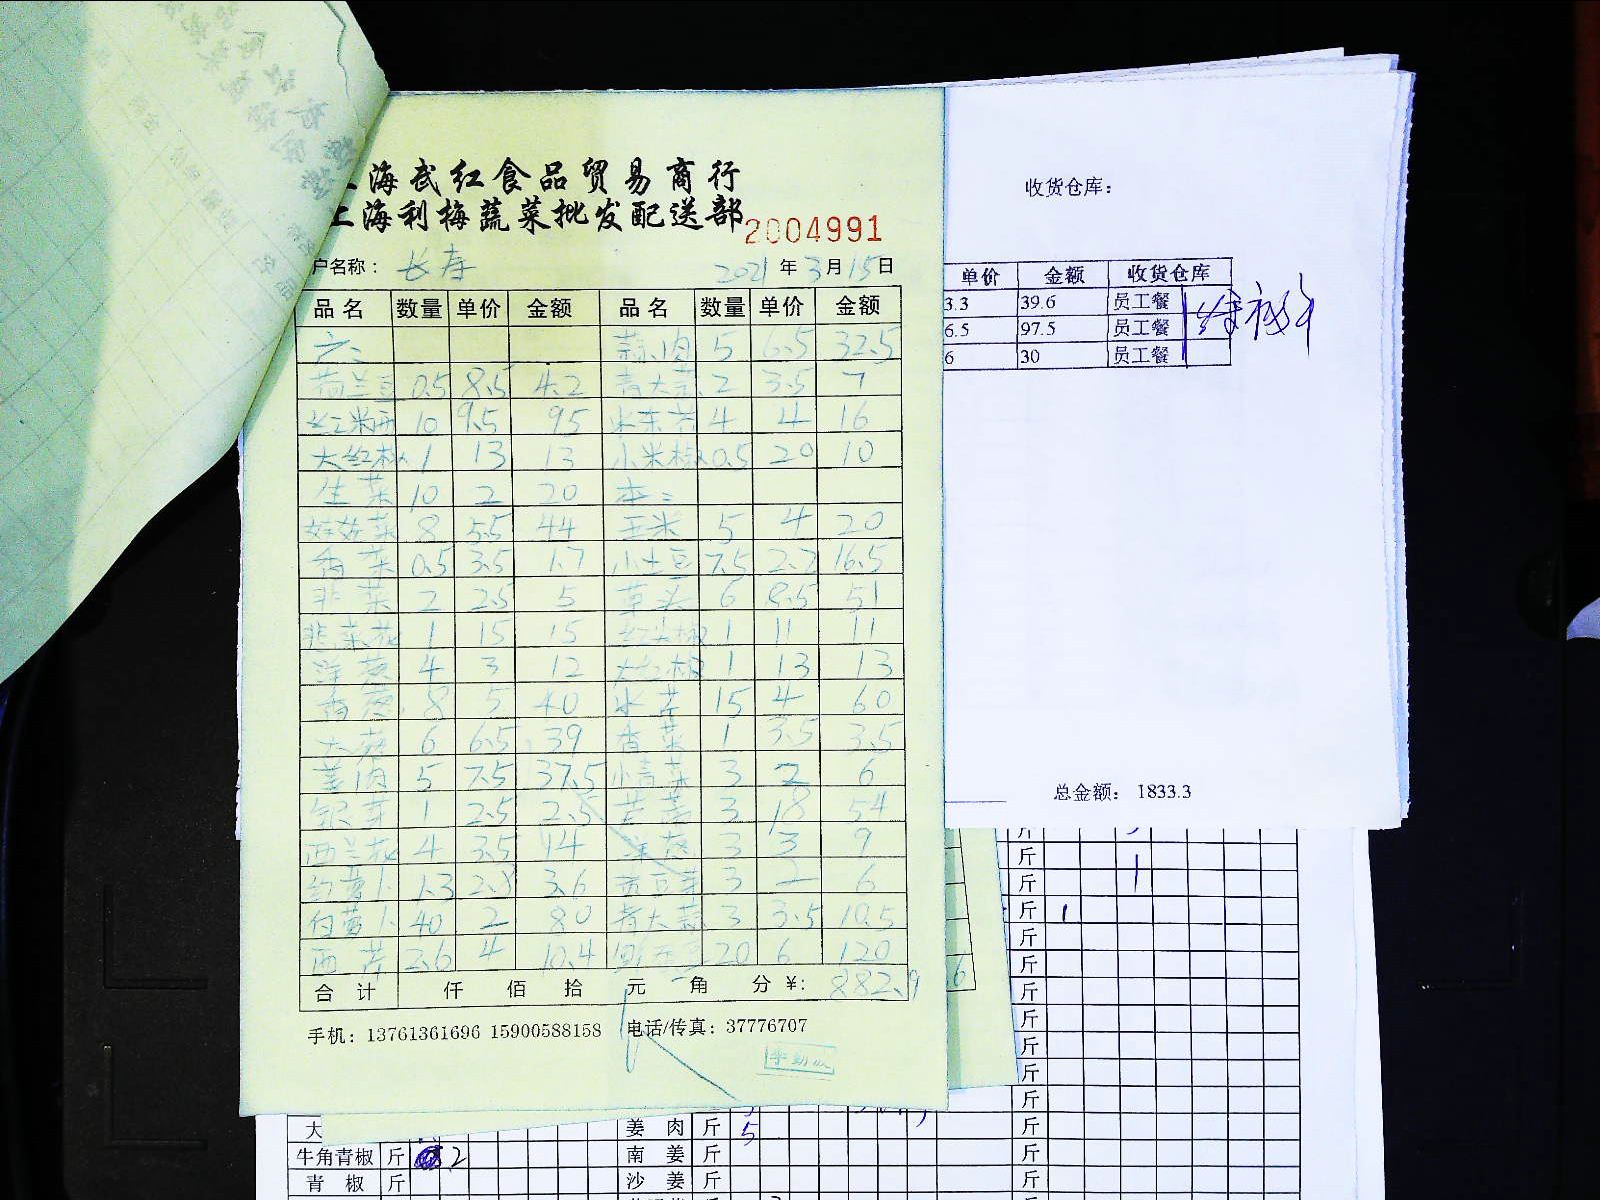 海武红食品贸易商行
上海利梅蔬菜批发配送部
2004991
户名称： 长寿 2021 年 3 月 15 日
品名 数量 单价 金额 品名 数量 单价 金额
蒜肉 5 6.5 32.5
荷兰豆 0.5 8.5 4.2 青大蒜 2 3.5 7
10 9.5 95 4 4 16
大红椒 1 13 13 小米椒 0.5 20 10
生菜 10 2 20
娃娃菜 8 5.5 44 玉米 5 4 20
香菜 0.5 3.5 1.7 小土豆 7.5 2.2 16.5
韭菜 2 2.5 5 草头 6 8.5 51
韭菜花 1 15 15 红尖椒 1 11 11
洋葱 4 3 12 大红椒 1 13 13
香葱 8 5 40 水芹 15 4 60
大蒜 6 6.5 39 香菜 1 3.5 3.5
姜肉 5 7.5 37.5 小青菜 3 2 6
银芽 1 2.5 2.5 3 18 54
西兰花 4 3.5 14 洋葱 3 3 9
红萝卜 1.3 2.8 3.6 黄豆芽 3 2 6
白萝卜 40 2 80 青大蒜 3 3.5 10.5
西芹 2.6 4 10.4 20 6 120
合计 仟 佰 拾 元 角 分 ¥： 882.9
手机：13761361696 15900588158 电话/传真：37776707
收货仓库：
单价 金额 收货仓库
3.3 39.6 员工餐
6.5 97.5 员工餐
6 30 员工餐
总金额： 1833.3
6
斤
斤
斤
斤 1
斤
斤
斤
斤
斤
斤
斤
大 姜肉 斤 5 斤
牛角青椒 斤 2 南姜 斤 斤
青椒 斤 沙姜 斤 斤